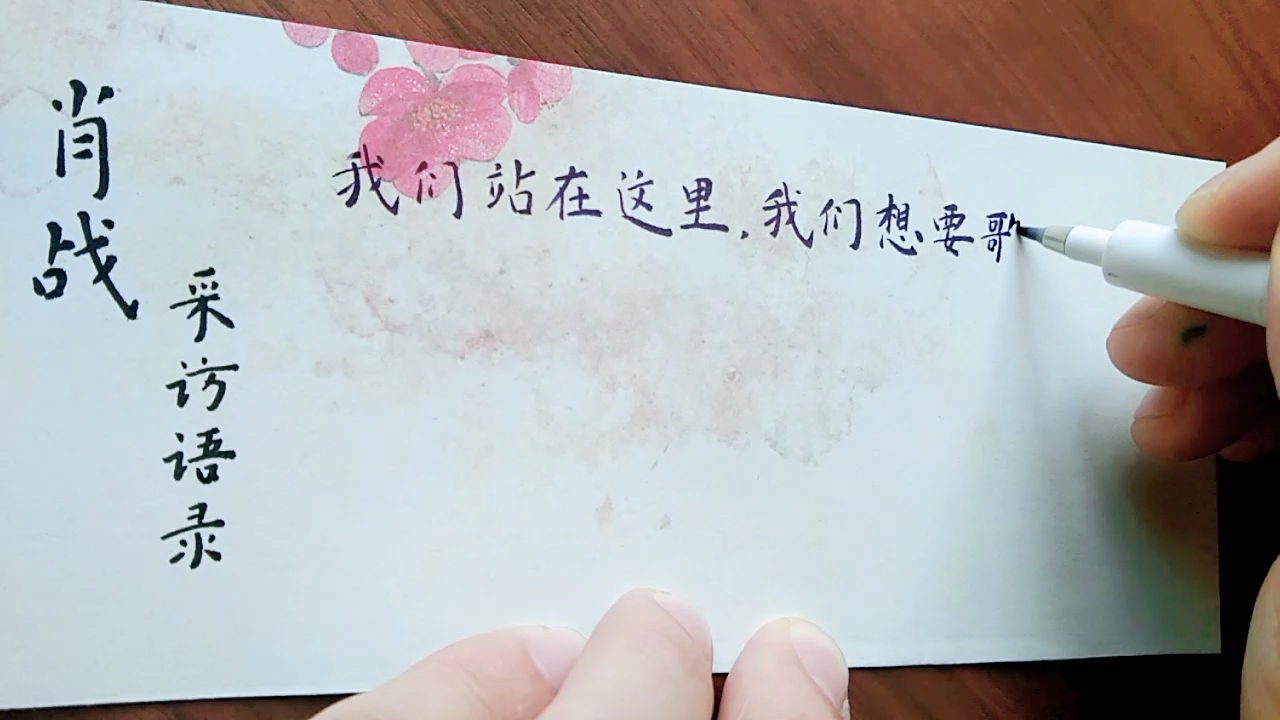 肖战
采访语录
我们站在这里,我们想要歌